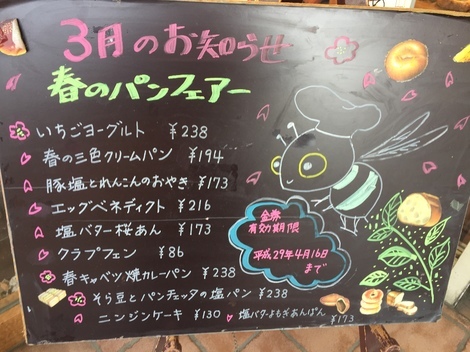 3月のお知らせ
春のパンフェアー
いちごヨーグルト ¥238
春の三色クリームパン ¥194
豚塩とれんこんのおやき ¥173
エッグベネディクト ¥216
塩バター桜あん ¥173
クラプフェン ¥86
春キャベツ焼カレーパン ¥238
そら豆とパンチェッタの塩パン ¥238
ニンジンケーキ ¥130
塩バターよもぎあんぱん ¥173
金券
有効期限
平成29年4月16日
まで